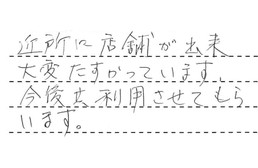 近所に店舗が出来
大変たすかっています。
今後共利用させてもら
います。